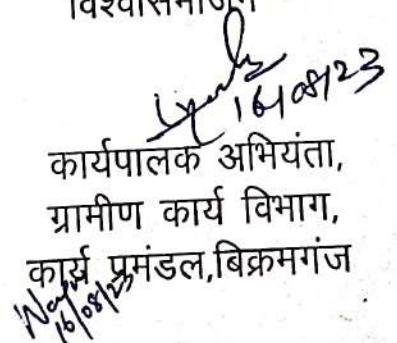 विश्वासभाजन
16/08/23
कार्यपालक अभियंता,
ग्रामीण कार्य विभाग,
कार्य प्रमंडल,बिक्रमगंज
16/08/23